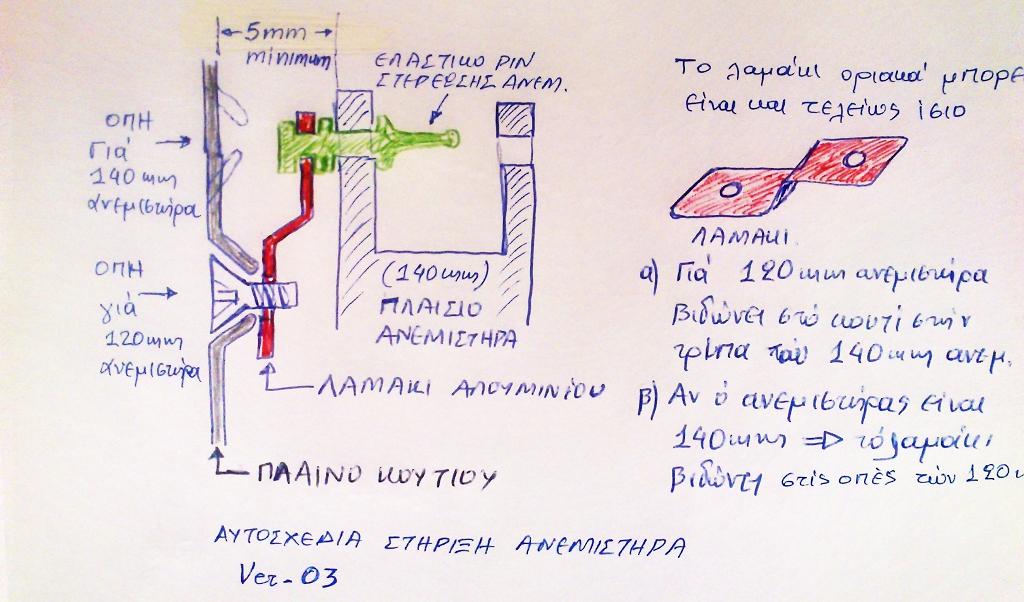 5mm
minimum
ΕΛΑΣΤΙΚΟ PIN
ΣΤΕΡΕΩΣΗΣ ΑΝΕΜ.
ΟΠΗ
Γιά
140mm
ἀνεμιστήρα
ΟΠΗ
γιά
120mm
ἀνεμιστήρα
(140mm)
ΠΛΑΙΣΙΟ
ΑΝΕΜΙΣΤΗΡΑ
ΛΑΜΑΚΙ ΑΛΟΥΜΙΝΙΟΥ
ΠΛΑΙΝΟ ΚΟΥΤΙΟΥ
Το λαμάκι οριακά μπορε
είναι και τελείως ίσιο
ΛΑΜΑΚΙ.
α) Γιά 120mm ανεμιστήρα
βιδώνει στό κουτί στήν
τρύπα τοῦ 140mm ανεμ.
β) Αν ὁ ανεμιστήρας είναι
140mm ⇒ τό λαμάκι
βιδώνει στίς οπές των 120
ΑΥΤΟΣΧΕΔΙΑ ΣΤΗΡΙΞΗ ΑΝΕΜΙΣΤΗΡΑ
Ver-03